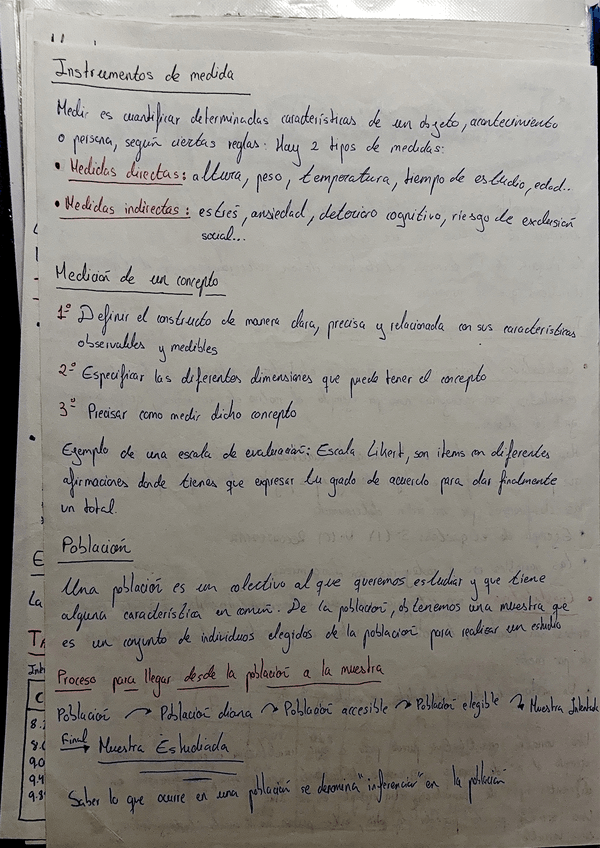 Instrumentos de medida
Medir es cuantificar determinadas características de un objeto, acontecimiento
o persona, según ciertas reglas. Hay 2 tipos de medidas:
• Medidas directas: altura, peso, temperatura, tiempo de estudio, edad...
• Medidas indirectas: estrés, ansiedad, deterioro cognitivo, riesgo de exclusión
social...
Medición de un concepto
1º Definir el constructo de manera clara, precisa y relacionada con sus características
observables y medibles
2º Especificar las diferentes dimensiones que puede tener el concepto
3º Precisar como medir dicho concepto
Ejemplo de una escala de evaluación: Escala Likert, son items con diferentes
afirmaciones donde tienes que expresar tu grado de acuerdo para dar finalmente
un total.
Población
Una población es un colectivo al que queremos estudiar y que tiene
alguna característica en común. De la población, obtenemos una muestra que
es un conjunto de individuos elegidos de la población para realizar un estudio
Proceso para llegar desde la población a la muestra
Población → Población diana → Población accesible → Población elegible → Muestra Intentada
Final → Muestra Estudiada
Saber lo que ocurre en una población se denomina "inferencia" en la población